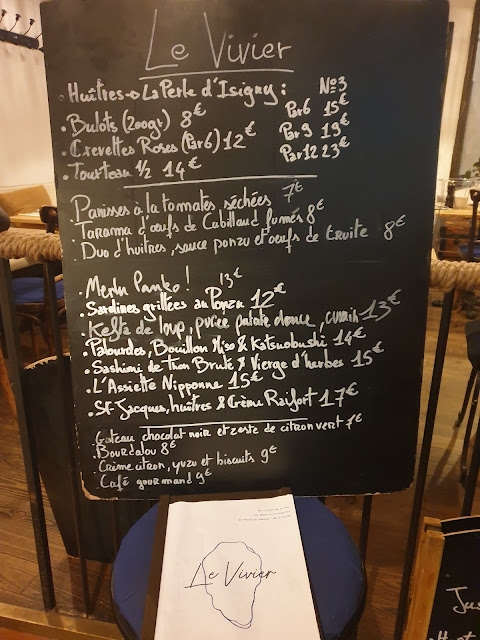 Le Vivier
Huîtres → La Perle d'Isigny : N°3
Par 6 15€
• Bulots (200gr) 8€
Par 9 19€
• Crevettes Roses (Par 6) 12€
Par 12 23€
• Tourteau 1/2 14€
Panisses à la tomates séchées 7€
Tarama d'œufs de Cabillaud fumés 8€
• Duo d'huitres, sauce ponzu et œufs de truite 8€
• Merlu Panko ! 13€
• Sardines grillées au Ponzu 12€
Kefta de loup, purée patate douce, cumin 13€
• Palourdes, Bouillon Miso & Katsuobushi 14€
• Sashimi de Thon Brute & Vierge d'herbes 15€
• L'Assiette Nipponne 15€
• St-Jacques, huîtres & Crème Raifort 17€
Gateau chocolat noir et zeste de citron vert 7€
• Bourdalou 8€
• Crème citron, yuzu et biscuits 9€
• Café gourmand 9€
Le Vivier
Jus